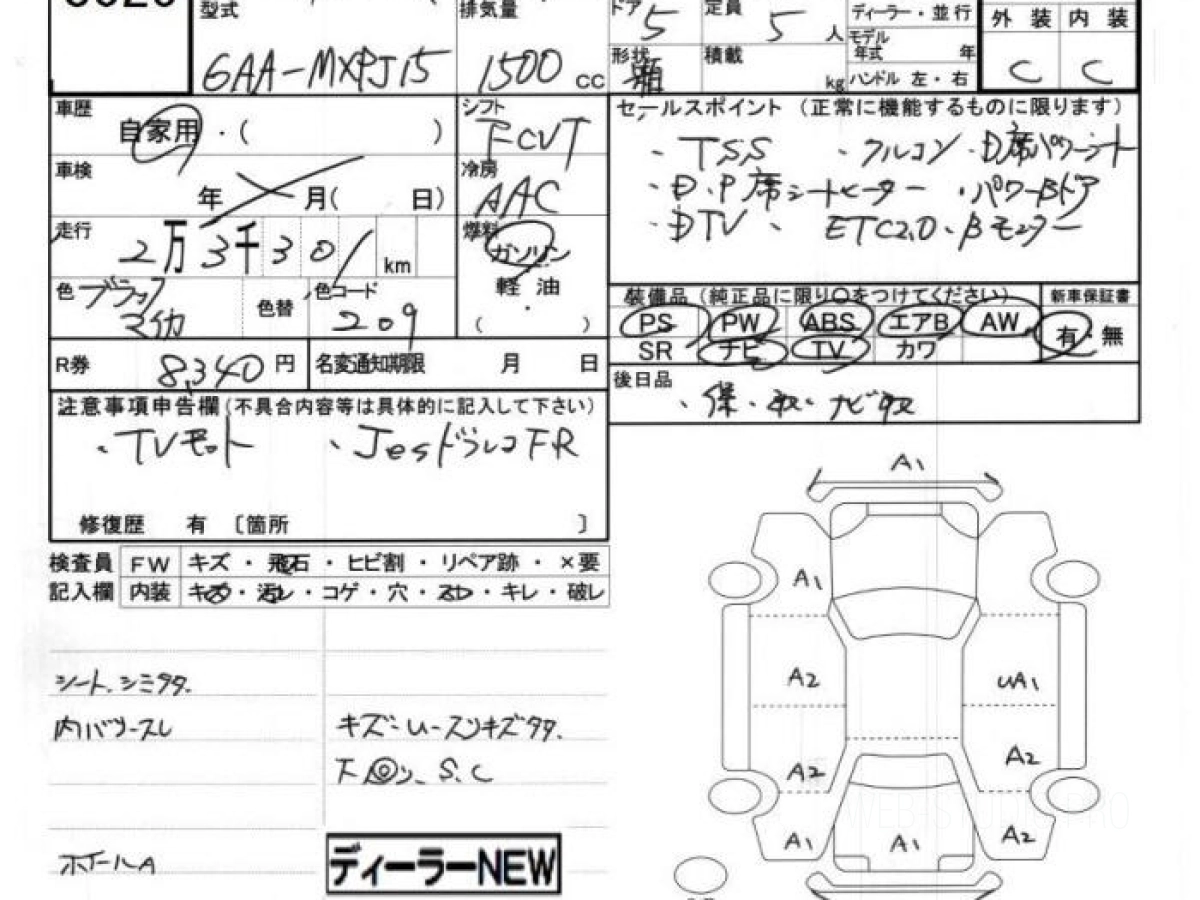 型式
排気量
ドア 5
定員 5 人
ディーラー・並行
モデル年式 年
ハンドル 左・右
外装 内装
C C
6AA-MXPJ15
1500 cc
形状
積載 kg
車歴 自家用・( )
シフト FCVT
車検 年 月( 日)
冷房 AAC
走行 2万3千301 km
燃料 ガソリン
軽油
( )
色 ブラック
マイカ
色替
色コード 209
R券 8,340 円
名変通知期限 月 日
セールスポイント (正常に機能するものに限ります)
・TSS ・クルコン ・D席パワーシート
・D.P席シートヒーター ・パワーBドア
・DTV ・ETC2.0・Bモニター
装備品(純正品に限り〇をつけてください)
新車保証書
PS PW ABS エアB AW
有・無
SR ナビ TV カワ
後日品
・保・取・ナビ取
注意事項申告欄(不具合内容等は具体的に記入して下さい)
・TVキット
修復歴 有 〔箇所 〕
検査員
記入欄
FW キズ・飛石・ヒビ割・リペア跡・×要
内装 キズ・汚レ・コゲ・穴・スレ・キレ・破レ
シート、シミタタ.
内バリスレ
キズタタ.
S.C
ホイールA
ディーラーNEW
A1
A1
A2
UA1
A2
A2
A1
A1
A2